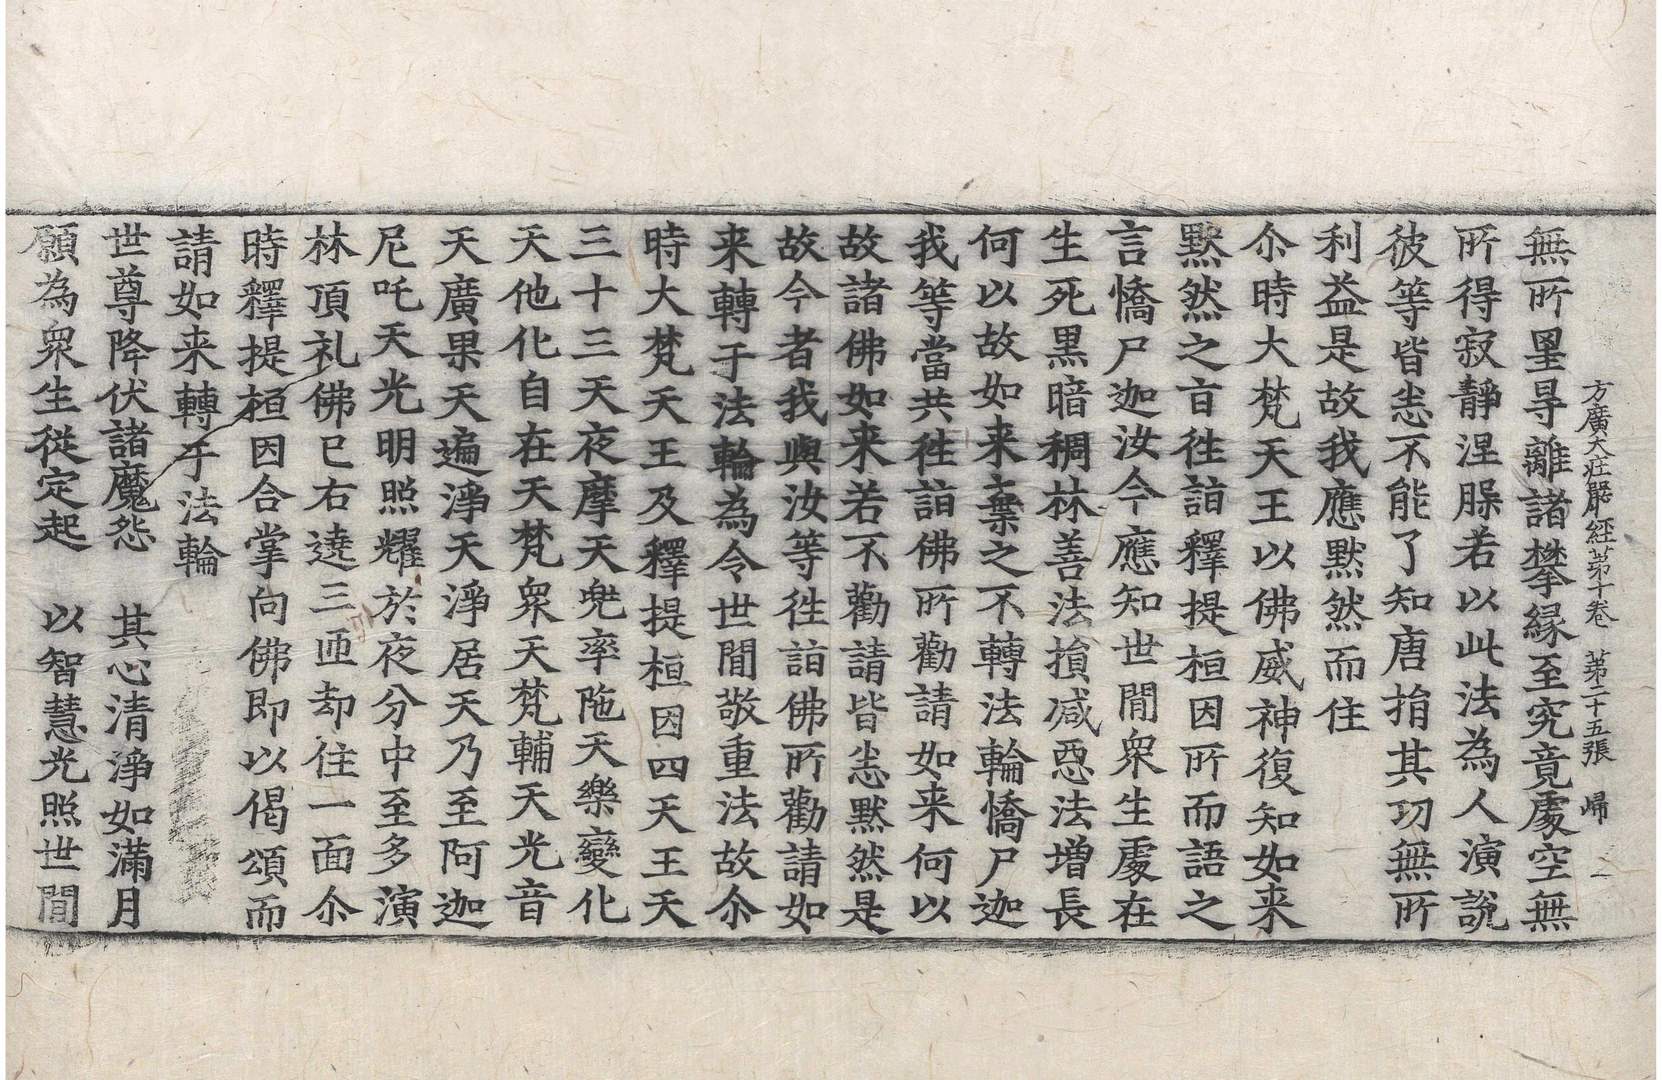 方廣大莊嚴經苐十卷 苐二十五張 㱕
無所罣㝵離諸攀緣至究竟䖏空無
所得寂靜涅脲若以此法為人演說
彼等皆悉不能了知唐捐其功無所
利益是故我應默然而住
尒時大梵天王以佛威神復知如来
默然之㫖徃詣釋提桓因所而語之
言憍尸迦汝今應知世間衆生䖏在
生死黒暗稠林善法損减惡法增長
何以故如来棄之不轉法輪憍尸迦
我等當共徃詣佛所勸請如来何以
故諸佛如来若不勸請皆悉默然是
故今者我與汝等徃詣佛所勸請如
来轉于法輪為令世間敬重法故尒
時大梵天王及釋提桓因四天王天
三十三天夜摩天兠率陁天樂變化
天他化自在天梵衆天梵輔天光音
天廣果天遍淨天淨居天乃至阿迦
尼吒天光明照耀於夜分中至多演
林頂礼佛已右遶三匝却住一面尒
時釋提桓因合掌向佛即以偈頌而
請如来轉于法輪
世尊降伏諸魔怨 其心清淨如滿月
願為衆生從定起 以智慧光照世間